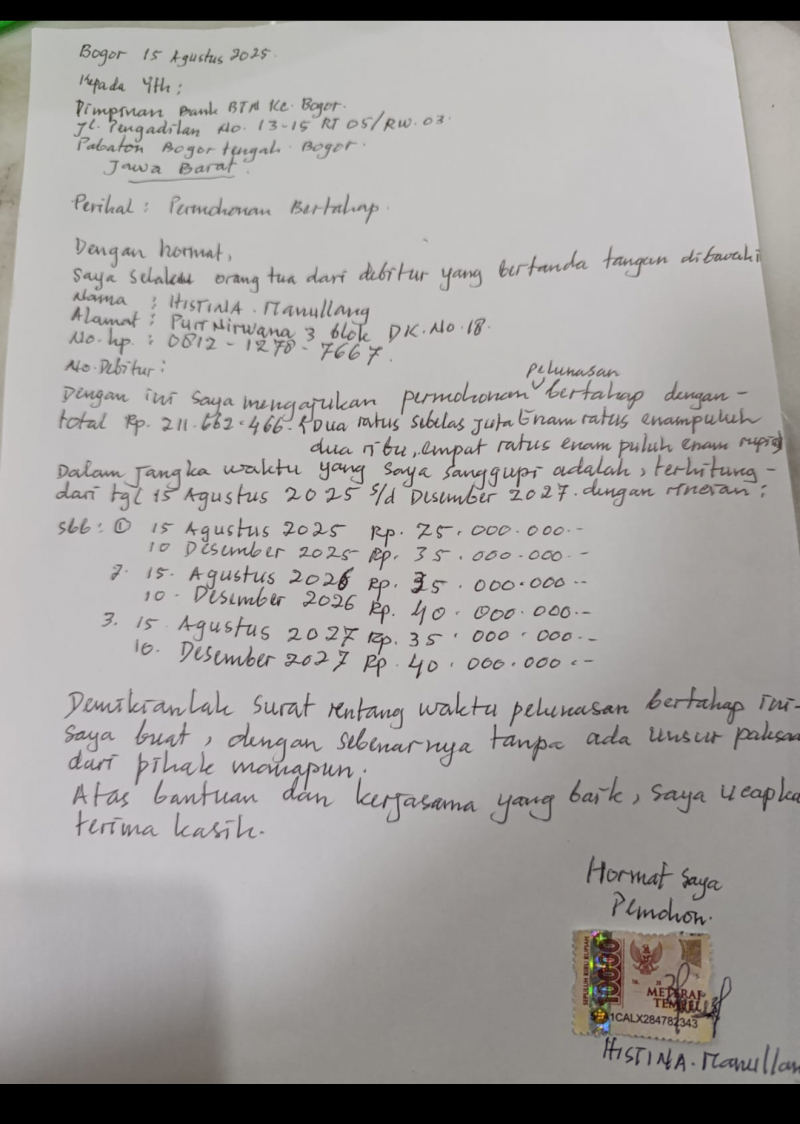 Bogor 15 Agustus 2025.
Kepada Yth :
Pimpinan Bank BTN Kc. Bogor.
Jl. Pengadilan No. 13-15 RT 05/RW. 03.
Pabaton Bogor tengah. Bogor.
Jawa Barat.
Perihal : Permohonan Bertahap.
Dengan hormat,
Saya selaku orang tua dari debitur yang bertanda tangan dibawahi
Nama : HISTINA. Manullang
Alamat : Puri Nirwana 3 blok DK. No. 18.
No. hp. : 0812 - 1278 - 7667.
No. Debitur :
Dengan ini saya mengajukan permohonan pelunasan bertahap dengan -
total Rp. 211.662.466. ( Dua ratus sebelas juta Enam ratus enampuluh
dua ribu, empat ratus enam puluh enam rupia
Dalam jangka waktu yang saya sanggupi adalah, terhitung -
dari tgl 15 Agustus 2025 s/d Desember 2027. dengan rincian :
sbb : 1 15 Agustus 2025 Rp. 25.000.000.-
10 Desember 2025 Rp. 35.000.000.-
2. 15. Agustus 2026 Rp. 35.000.000.-
10. Desember 2026 Rp. 40.000.000.-
3. 15 Agustus 2027 Rp. 35.000.000.-
10. Desember 2027 Rp. 40.000.000.-
Demikianlah surat rentang waktu pelunasan bertahap ini -
saya buat, dengan sebenarnya tanpa ada unsur paksaa
dari pihak manapun.
Atas bantuan dan kerjasama yang baik, saya ucapka
terima kasih.
Hormat saya
Pemohon.
SEPULUH RIBU RUPIAH
10000
METERAI
TEMPEL
1CALX284782343
HISTINA. Manullan